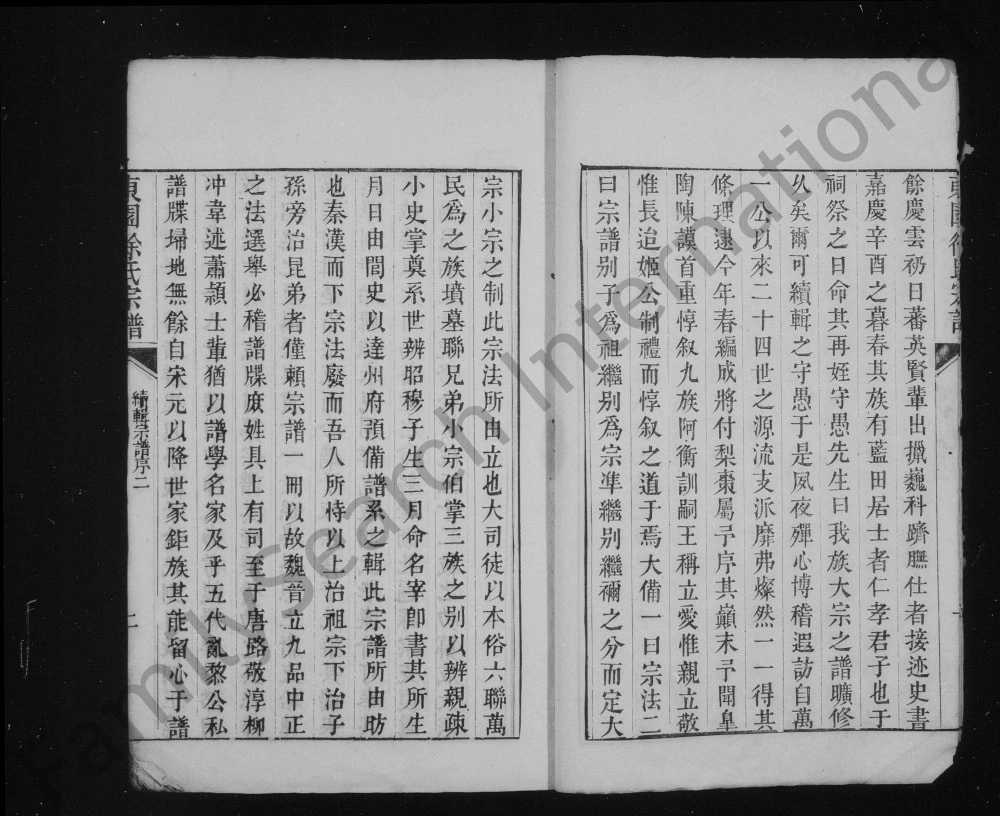 餘慶雲礽日蕃英賢輩出擷巍科躋膴仕者接迹史書
嘉慶辛酉之暮春其族有藍田居士者仁孝君子也于
祠祭之日命其再姪守愚先生曰我族大宗之譜曠修
久矣爾可續輯之守愚于是夙夜殫心博稽遐訪自萬
一公以來二十四世之源流支派靡弗燦然一一得其
條理逮今年春編成將付梨棗屬予序其巔末予聞臯
陶陳謨首重惇叙九族阿衡訓嗣王稱立愛惟親立敬
惟長迨姬公制禮而惇叙之道于焉大備一曰宗法二
曰宗譜別子為祖繼別為宗準繼別繼禰之分而定大
宗小宗之制此宗法所由立也大司徒以本俗六聯萬
民為之族墳墓聯兄弟小宗伯掌三族之別以辨親疎
小史掌奠系世辨昭穆子生三月命名宰卽書其所生
月日由閭史以達州府預備譜系之輯此宗譜所由昉
也秦漢而下宗法廢而吾人所恃以上治祖宗下治子
孫旁治昆弟者僅賴宗譜一冊以故魏晉立九品中正
之法選舉必稽譜牒庻姓具上有司至于唐路敬淳柳
冲韋述蕭頴士軰猶以譜學名家及乎五代亂黎公私
譜牒埽地無餘自宋元以降世家鉅族其能留心于譜
東園徐氏宗譜
續輯宗譜序二
二
FamilySearch International